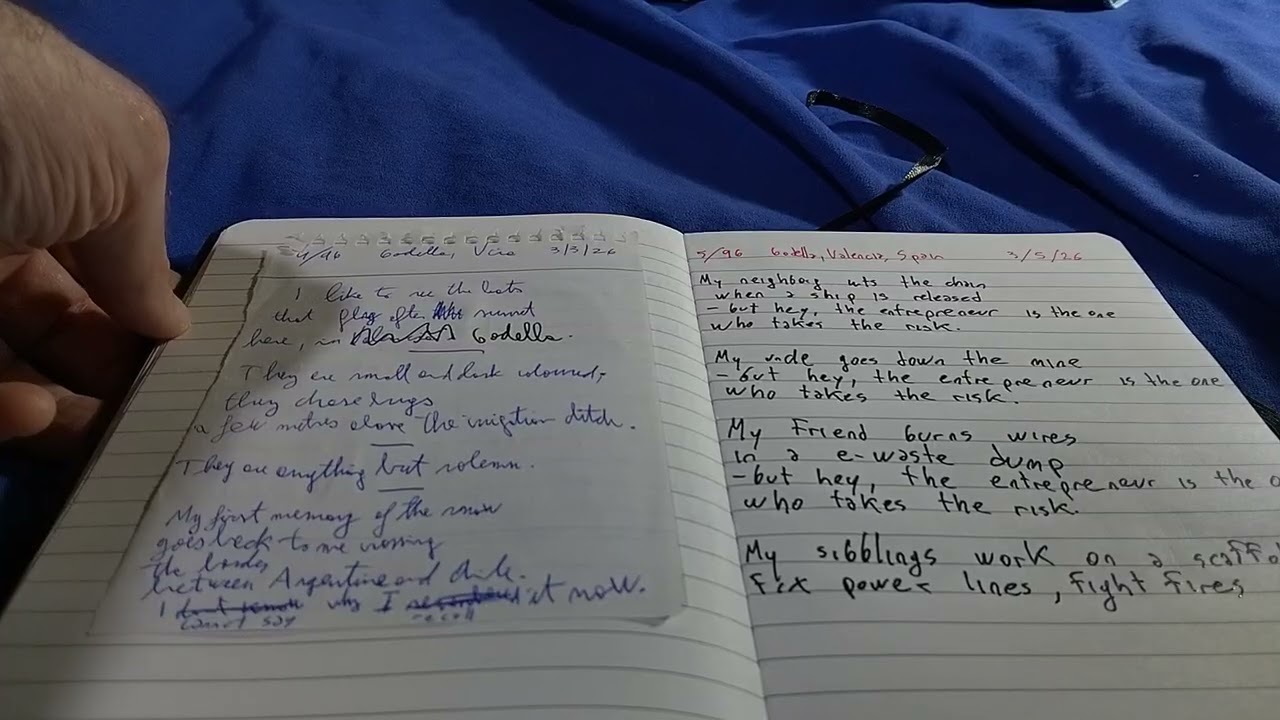 4/96 Godella, Vice 3/3/26
I like to see the bats
that play after sunset
here, in Godella.
They are small and dark coloured,
they chase bugs
a few metres above the irrigation ditch.
They are anything but solemn.
My first memory of the snow
goes back to me crossing
the border
between Argentina and Chile.
I cannot say why I recall it now.
5/96 Godella, Valencia, Spain 3/5/26
My neighborg cuts the chain
when a ship is released
- but hey, the entrepreneur is the one
who takes the risk.
My uncle goes down the mine
- but hey, the entrepreneur is the one
who takes the risk.
My Friend burns wires
in a e-waste dump
- but hey, the entrepreneur is the
who takes the risk.
My sibblings work on a
fix power lines, fight fires